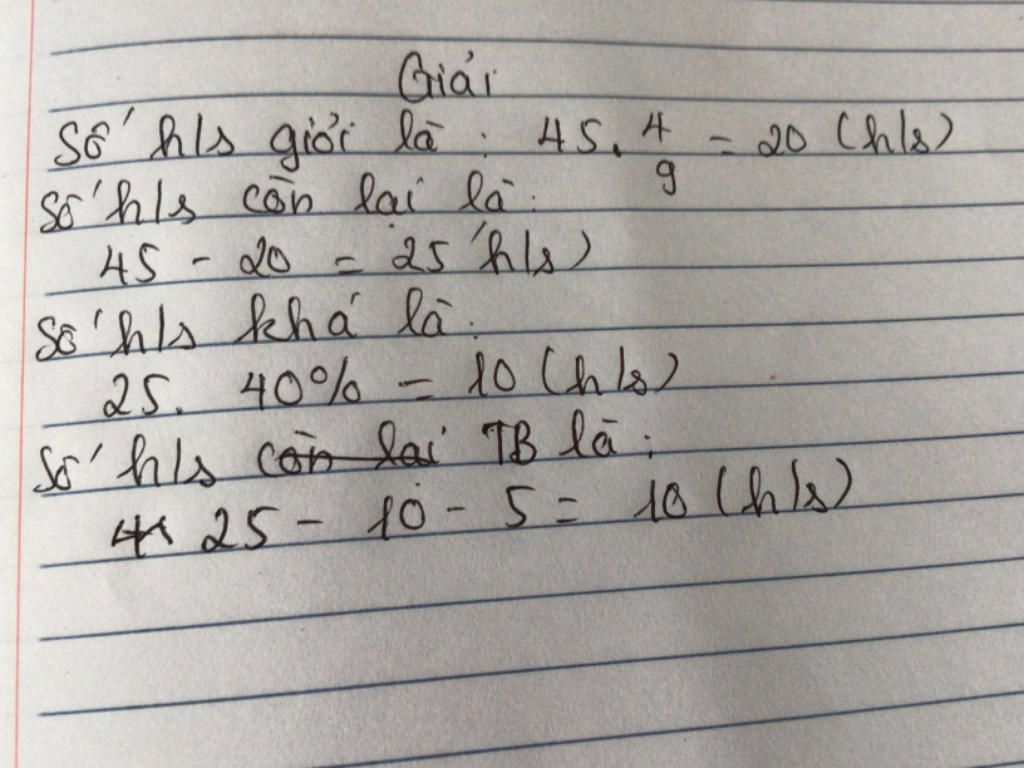 Giải
Số h/s giỏi là : 45 . 4/9 = 20 (h/s)
Số h/s còn lại là :
45 - 20 = 25 (h/s)
Số h/s khá là :
25 . 40% = 10 (h/s)
Số h/s còn lại TB là :
25 - 10 - 5 = 10 (h/s)